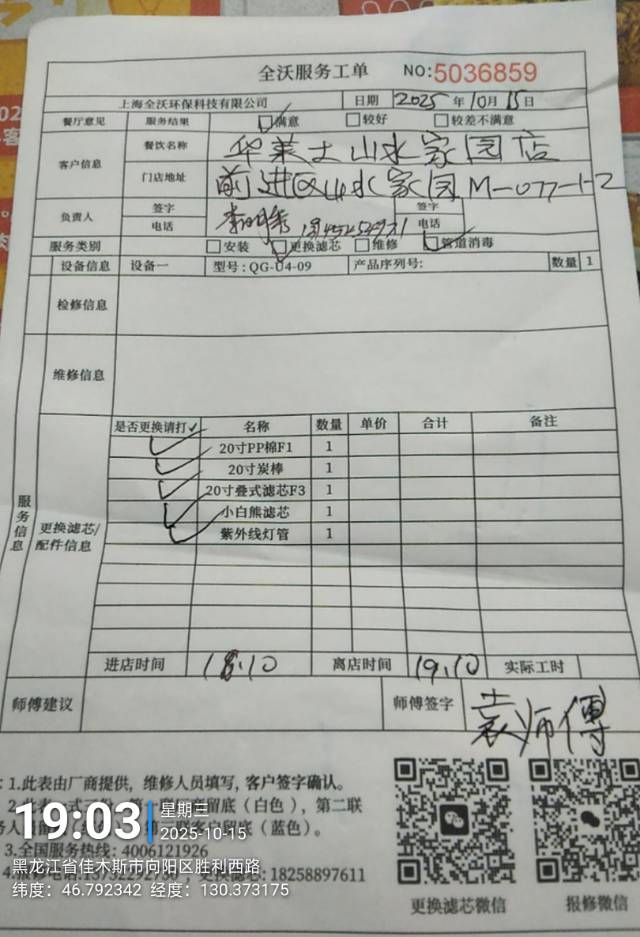 全沃服务工单 NO:5036859
上海全沃环保科技有限公司 日期 2025年10月15日
餐厅意见 服务结果 满意 较好 较差不满意
客户信息 餐饮名称 华莱士山水家园店
门店地址 前进区山水家园M-077-1-2
负责人 签字 签字
电话 电话
服务类别 安装 更换滤芯 维修 管道消毒
设备信息 设备一 型号:QG-U4-09 产品序列号: 数量 1
检修信息
维修信息
服务信息
更换滤芯/配件信息
是否更换请打✓ 名称 数量 单价 合计 备注
✓ 20寸PP棉F1 1
✓ 20寸炭棒 1
✓ 20寸叠式滤芯F3 1
✓ 小白熊滤芯 1
✓ 紫外线灯管 1
进店时间 18:10 离店时间 19:10 实际工时
师傅建议 师傅签字 袁师傅
1.此表由厂商提供，维修人员填写，客户签字确认。
留底（白色），第二联
客户留底（蓝色）。
3.全国服务热线：4006121926
18258897611
更换滤芯微信 报修微信
19:03 星期三
2025-10-15
黑龙江省佳木斯市向阳区胜利西路
纬度：46.792342 经度：130.373175